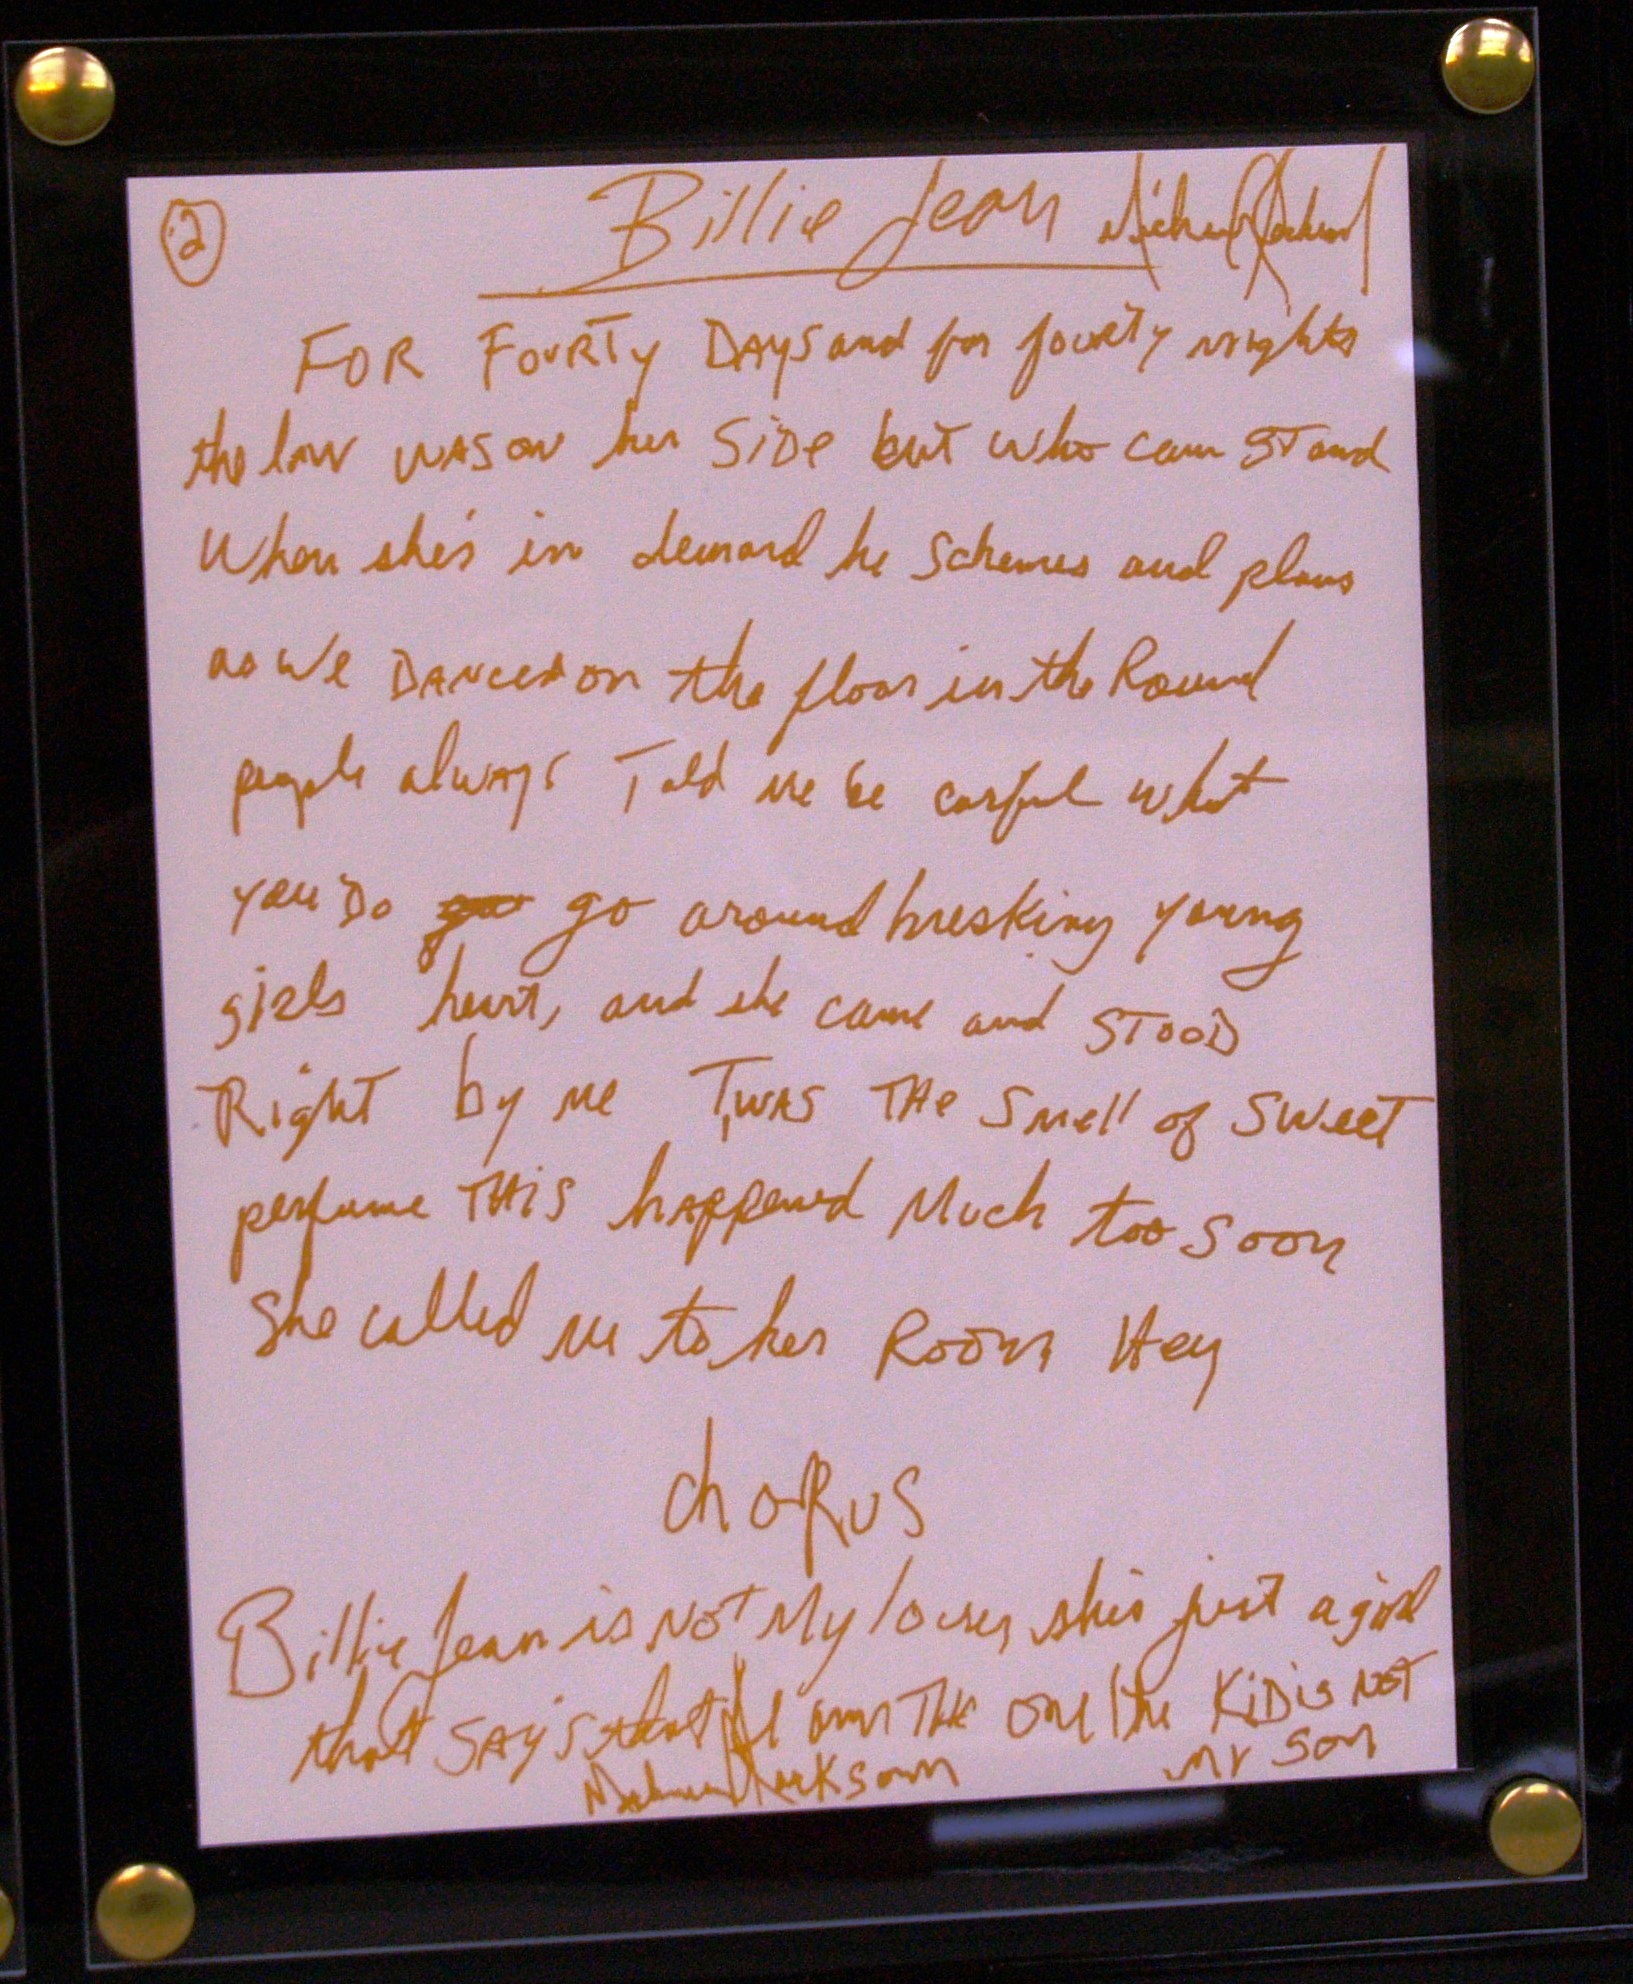 2 Billie Jean Michael Jackson
FOR FOURTY DAYS and for fourty nights
the law was on her SIDe but who can STand
When she's in demand he schemes and plans
as we DANCED on the floor in the Round
people always Told me be carful what
you Do go around breaking young
girls heart, and she came and STOOD
Right by me T,WAS THe Smell of SWeeT
perfume THiS happened Much too Soon
She called me to her Room Hey
chORUS
Billie Jean is NOT My lover, she's just a girl
that SAY'S that I am THe One the KiD is NOT
Michael Jackson My Son